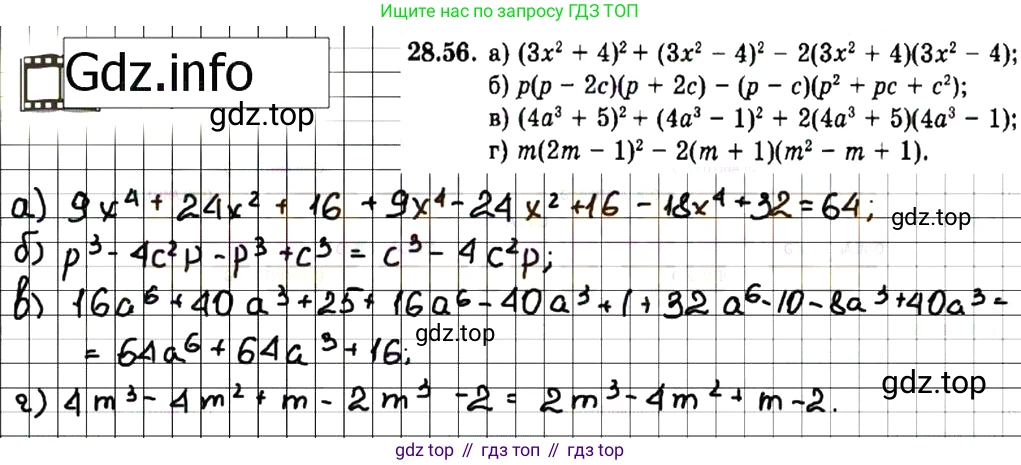 Ищите нас по запросу ГДЗ ТОП
Gdz.info
gdz.top
28.56. а) (3x² + 4)² + (3x² − 4)² − 2(3x² + 4)(3x² − 4);
б) p(p − 2c)(p + 2c) − (p − c)(p² + pc + c²);
в) (4a³ + 5)² + (4a³ − 1)² + 2(4a³ + 5)(4a³ − 1);
г) m(2m − 1)² − 2(m + 1)(m² − m + 1).
а) 9x⁴ + 24x² + 16 + 9x⁴ − 24x² + 16 − 18x⁴ + 32 = 64;
gdz.top
б) p³ − 4c²p − p³ + c³ = c³ − 4c²p;
в) 16a⁶ + 40a³ + 25 + 16a⁶ − 40a³ + 1 + 32a⁶ − 10 − 8a³ + 40a³ =
gdz.top
= 64a⁶ + 64a³ + 16;
gdz.top
г) 4m³ − 4m² + m − 2m³ − 2 = 2m³ − 4m² + m − 2.
gdz top // гдз топ // gdz.top